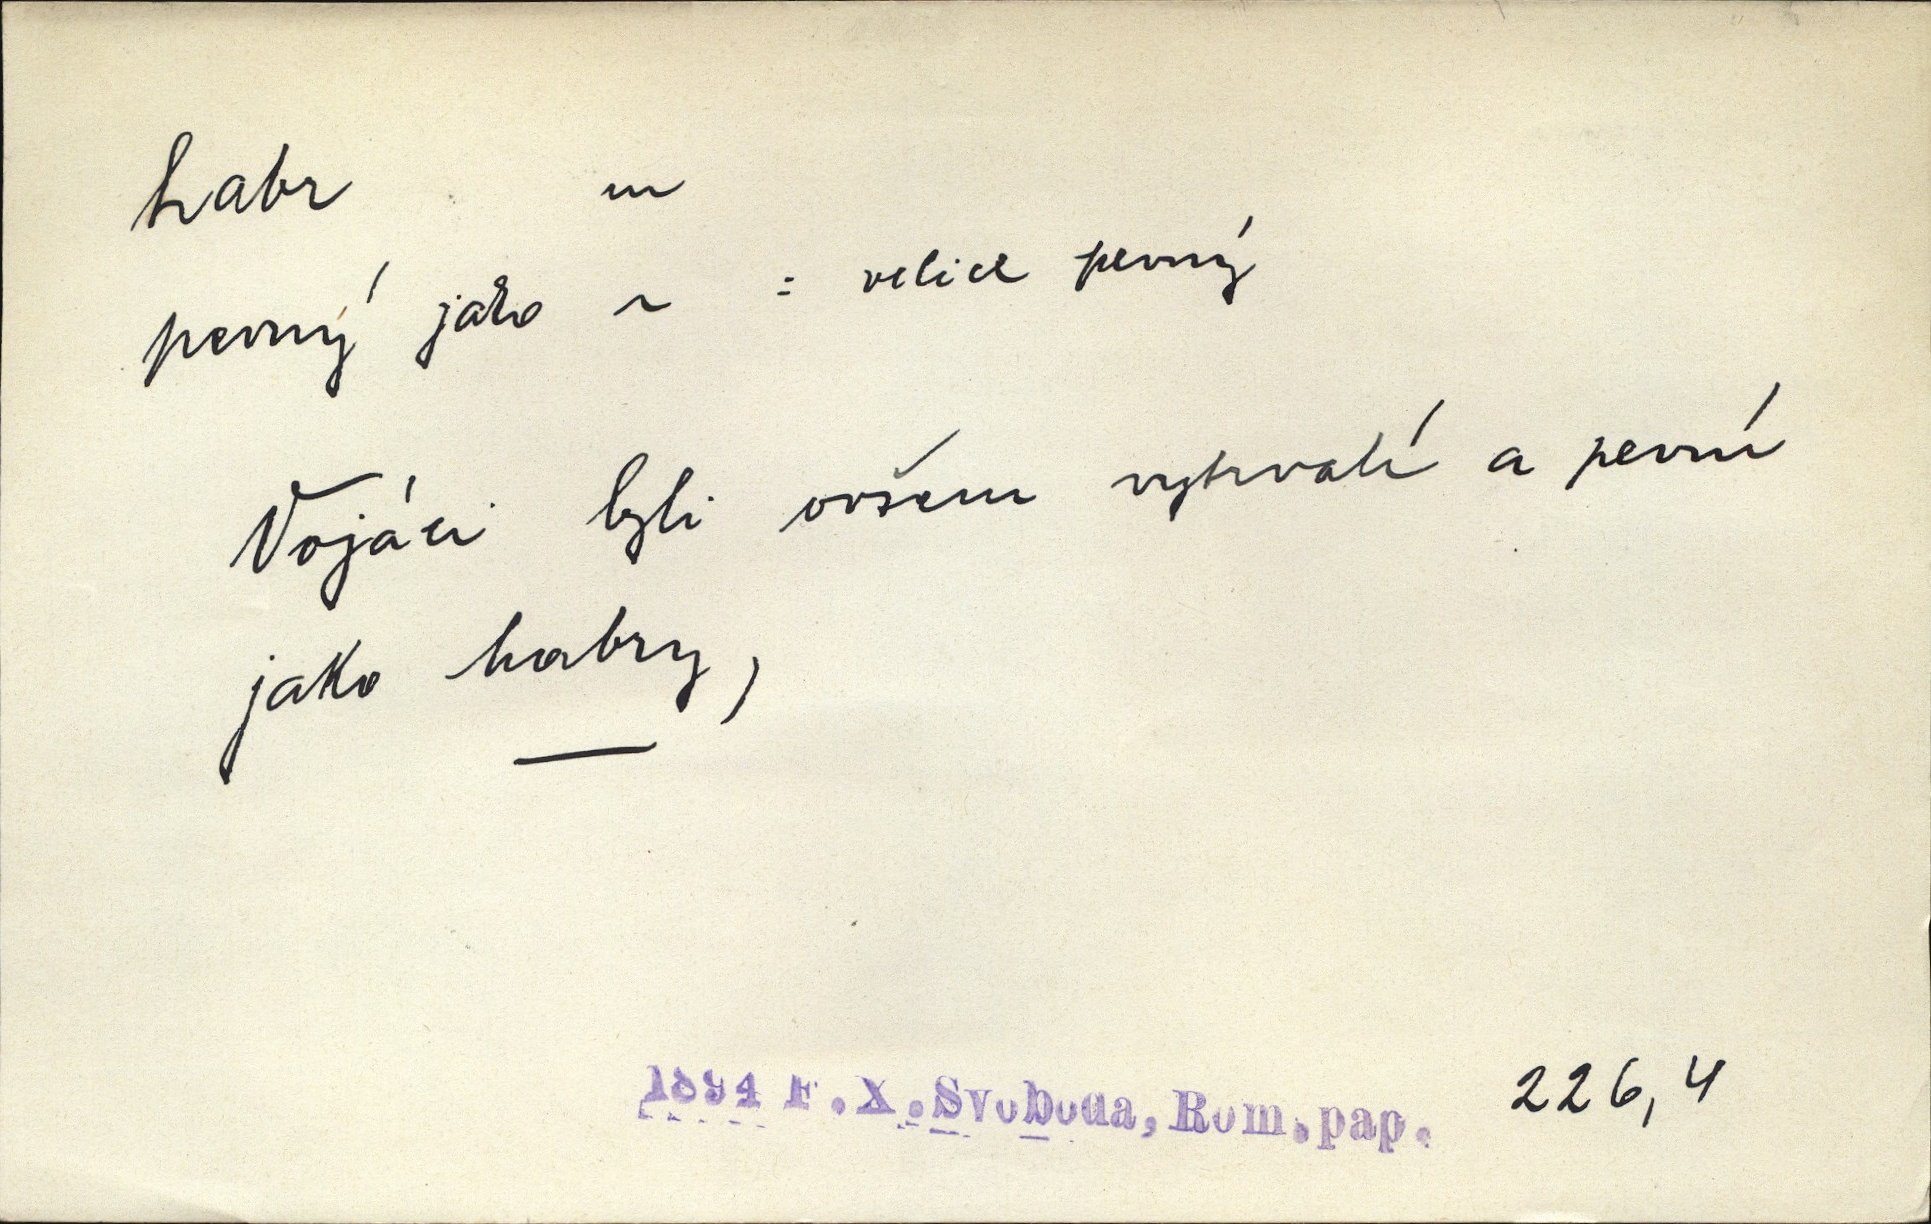 habr m
pevný jako ~ = velice pevný
Vojáci byli ovšem vytrvalí a pevní
jako habry,
1894 F.X.Svoboda, Rom.pap. 226,4